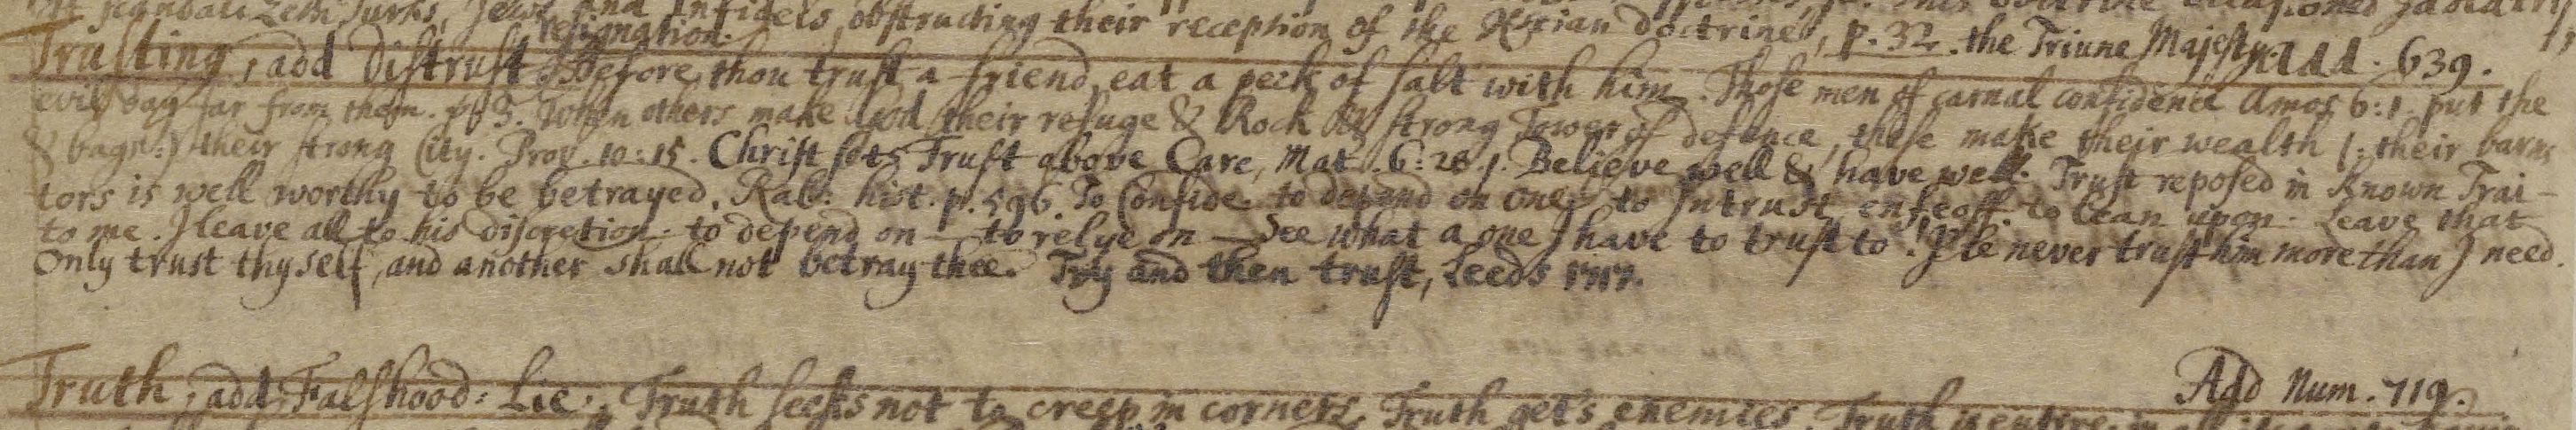 scandalizeth Turks, Jews and Infidels, obstructing their reception of the Xtian doctrine, p. 32. the Triune Majesty
Trusting, add Distrust. resignation. Before thou trust a friend, eat a peck of salt with him. Those men of carnal confidence Amos 6:1. put the Add. 639.
evil day far from them. p. 3. When others make God their refuge & Rock & strong Tower of defence, these make their wealth (: their barns
& bags:) their strong City. Prov. 10:15. Christ sets Trust above Care, Mat. 6:28. Believe well & have well. Trust reposed in known Trai-
tors is well worthy to be betrayed. Ral: hist. p. 596. To Confide. to depend on one. to Intrust. enfeoff. to lean upon. Leave that
to me. I leave all to his discretion. to depend on — to relye on — See what a one I have to trust to! I'le never trust him more than I need.
Only trust thyself, and another shall not betray thee. Try and then trust, Leeds 1717.
Truth, add Falshood: Lie. Truth seeks not to creep in corners. Truth get's enemies. Truth is entire Add Num. 719.